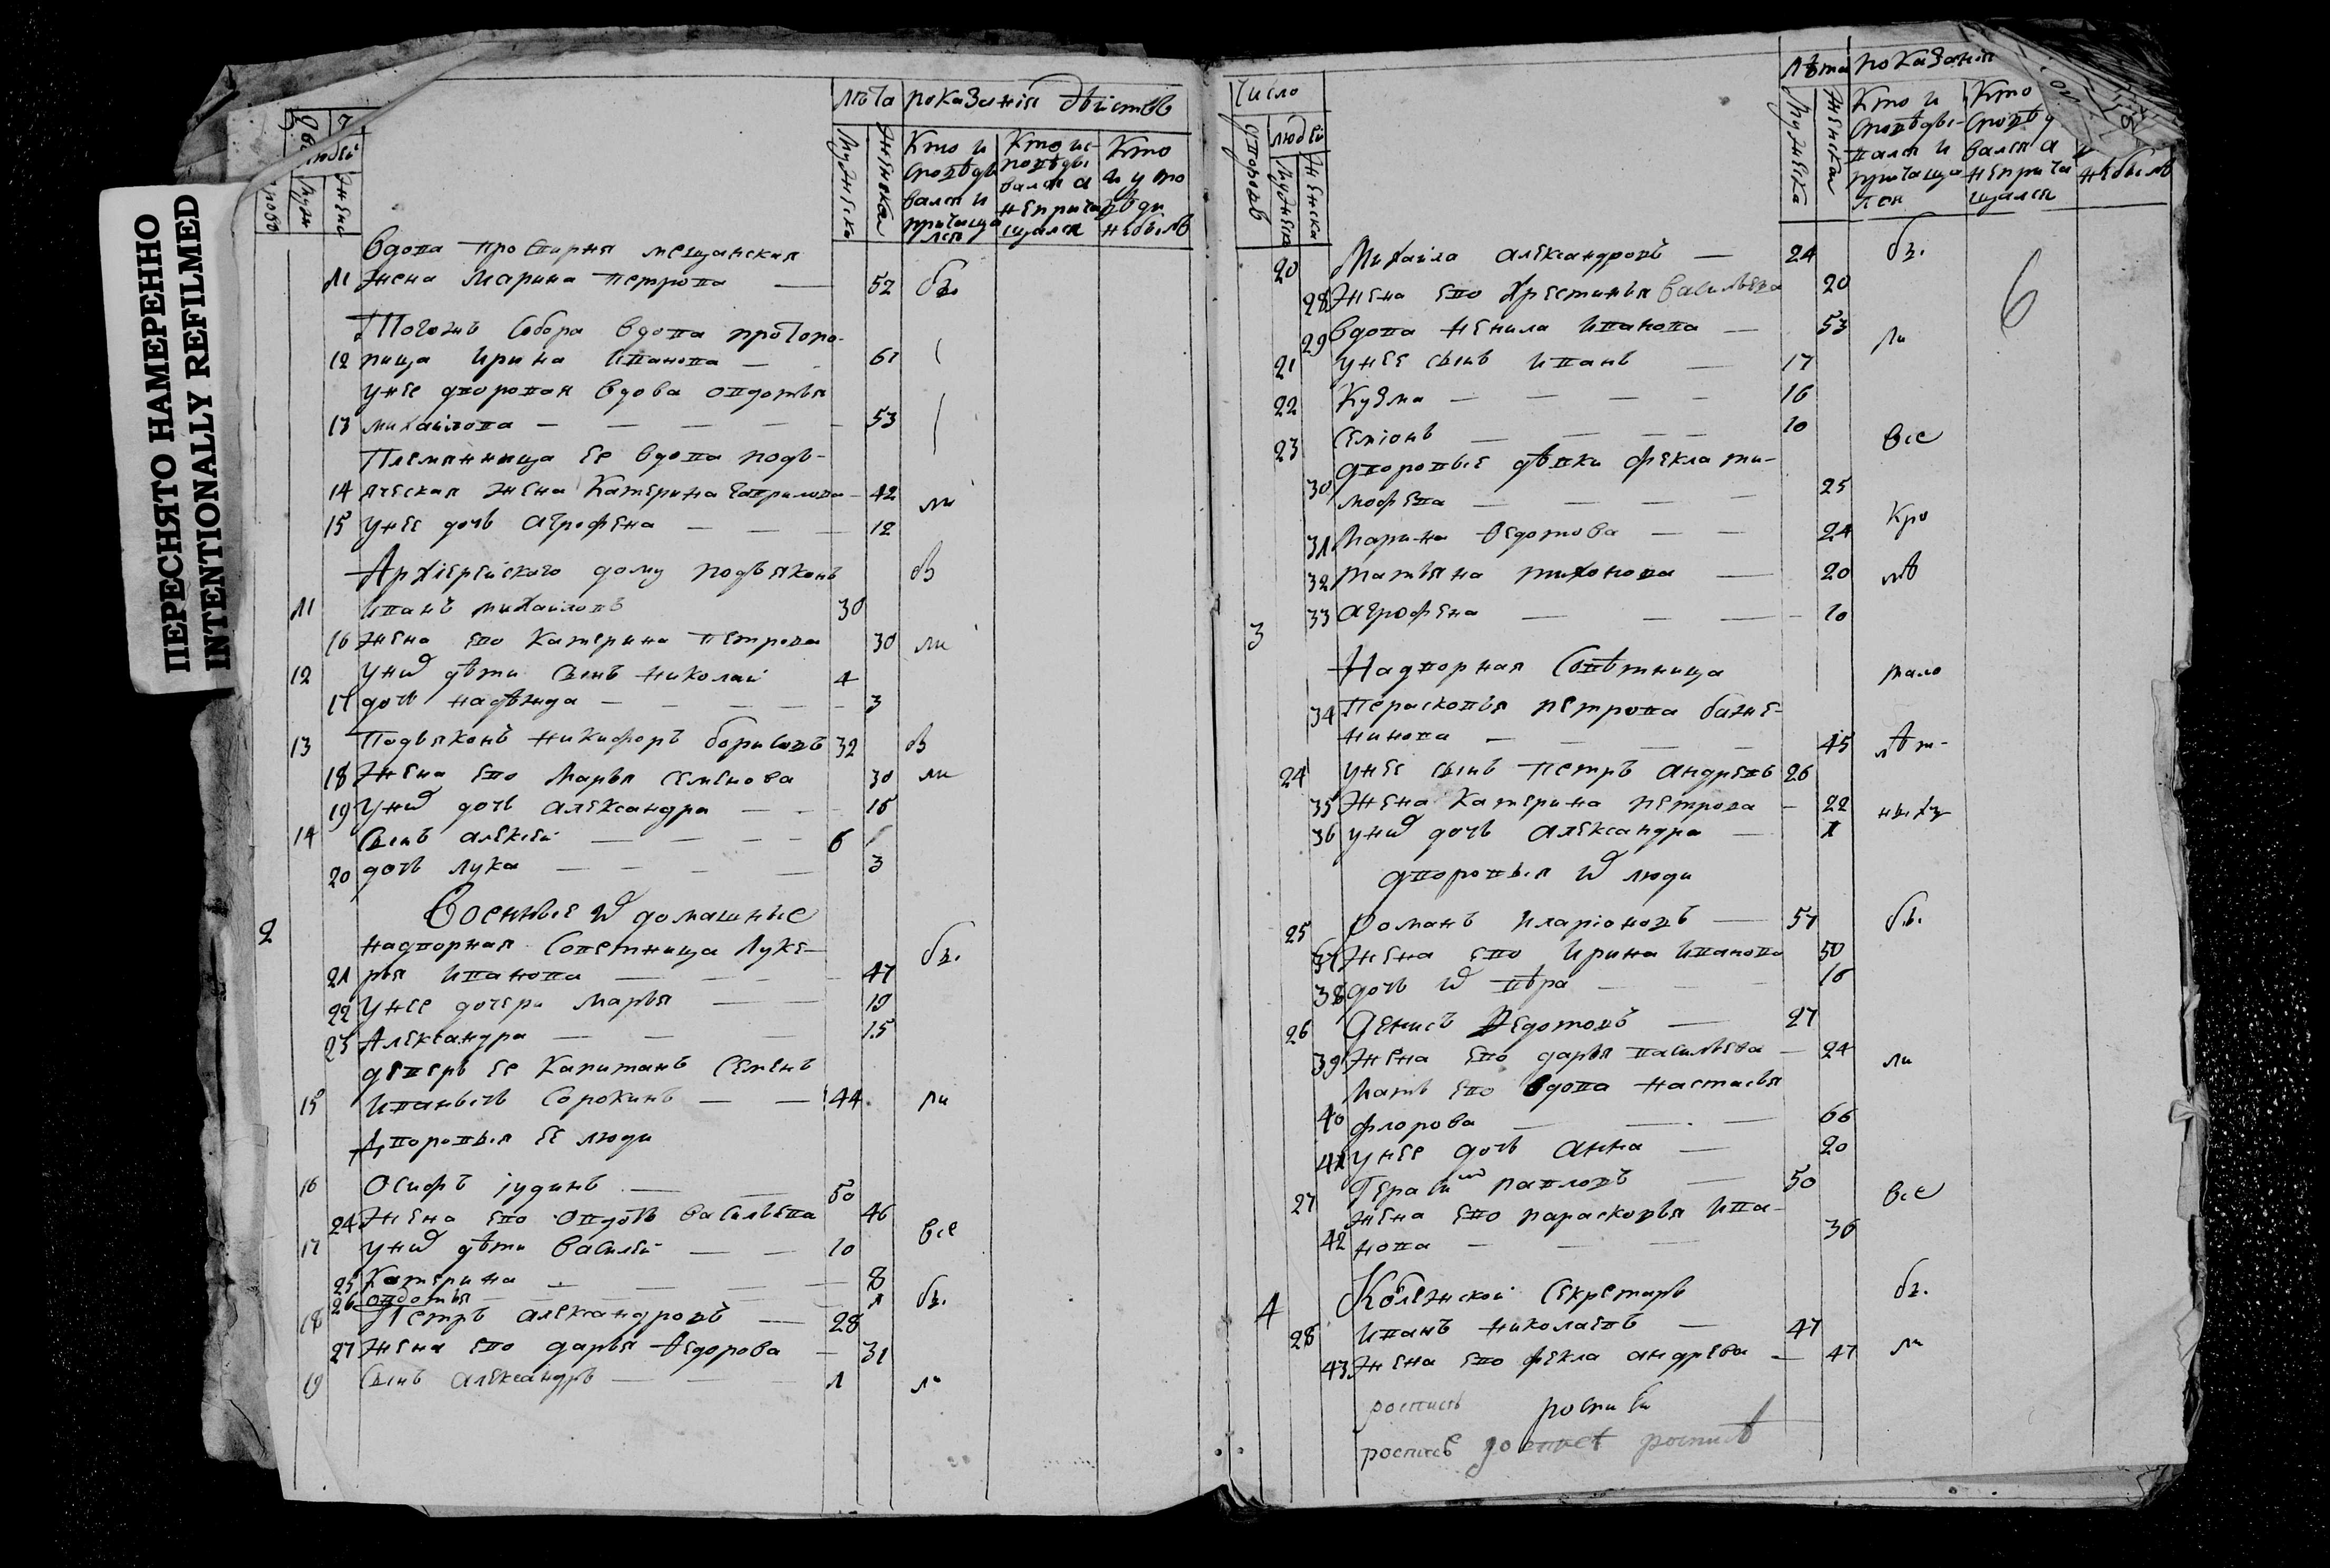 ПЕРЕСНЯТО НАМЕРЕННО
INTENTIONALLY REFILMED
лѣта показанія дѣйствъ
мужеска женска
Кто исповѣдывался и причащался
Кто исповѣдывался а непричащался
Кто и у исповѣди небылъ
вдова просвирня мещанская
11 жена Марина петрова — 52 бы
Тогожъ Собора вдова протопо-
12 пица Ирина Иванова — 61
унее дворовая вдова овдотья
13 михаилова — 53
Племянница ее вдова подъ-
14 яческая жена Катерина Гаврилова — 42 ли
15 унее дочь агрофена — 12
Архіерейскаго дому подъяконъ в
11 иванъ михаиловъ 30
16 жена ево Катерина петрова 30 ли
12 унихъ дѣти сынъ николай 4
17 дочь надѣжда — 3
13 Подъяконъ никифоръ борисовъ 32 в
18 Жена ево Марья семенова 30 ли
19 унихъ дочь александра — 16
14 сынъ алексей — 6
20 дочь лука — 3
2 Военные и домашные
надворная Советница Луке-
21 рья иванова — 47 бы.
22 унее дочери марья — 19
23 Александра — 15
деверь ее капитанъ семенъ
15 иванычь Сорокинъ — 44 ли
дворовыя ее люди
16 Осифъ іудинъ — 50
24 Жена ево овдотья васильева 46 все
17 унихъ дѣти василей — 10
25 Катерина — 8
26 овдотья — 1 бы.
18 Петръ александровъ — 28
27 жена ево дарья Ѳедорова — 31
19 сынъ александръ — 1 ли
число
дворовъ
людей
мужеска женска
Лѣта показанія
мужеска женска
Кто исповѣдывался и причащался
Кто
небылъ
6
20 Михаила александровъ — 24 бы.
28 жена ево Хрестинья васильева 20
29 вдова ненила иванова — 53 ли
21 унее сынъ иванъ — 17
22 Кузма — 16
23 семіонъ — 10 все
дворовые дѣвки фекла ти-
30 мофѣва — 25
31 Марина Ѳедотова — 24 кро
32 татьяна тихонова — 20 мѣ
33 агрофена — 10
3 Надворная Совѣтница мало
34 Перасковья петрова баже-
нинова — 45 лѣт-
24 унее сынъ петръ андрѣевъ 26
35 Жена Катерина петрова — 22 ныхъ
36 унихъ дочь александра — 1
дворовыя ихъ люди
25 Романъ иларіоновъ — 57 бы.
37 Жена ево Ирина иванова 50
38 дочь ихъ вѣра — 16
26 Денисъ Ѳедотовъ — 27
39 Жена ево дарья васильева — 24 ли
мать ево вдова настасья
40 флорова — 66
41 унее дочь анна — 20
27 Герасимъ павловъ — 50
жена ево парасковья ива- все
42 нова — 36
4 Колежской Секретарь бы.
28 иванъ николаевъ — 47
43 жена ево фекла андрева — 47 ли
роспись росписи
роспись роспись